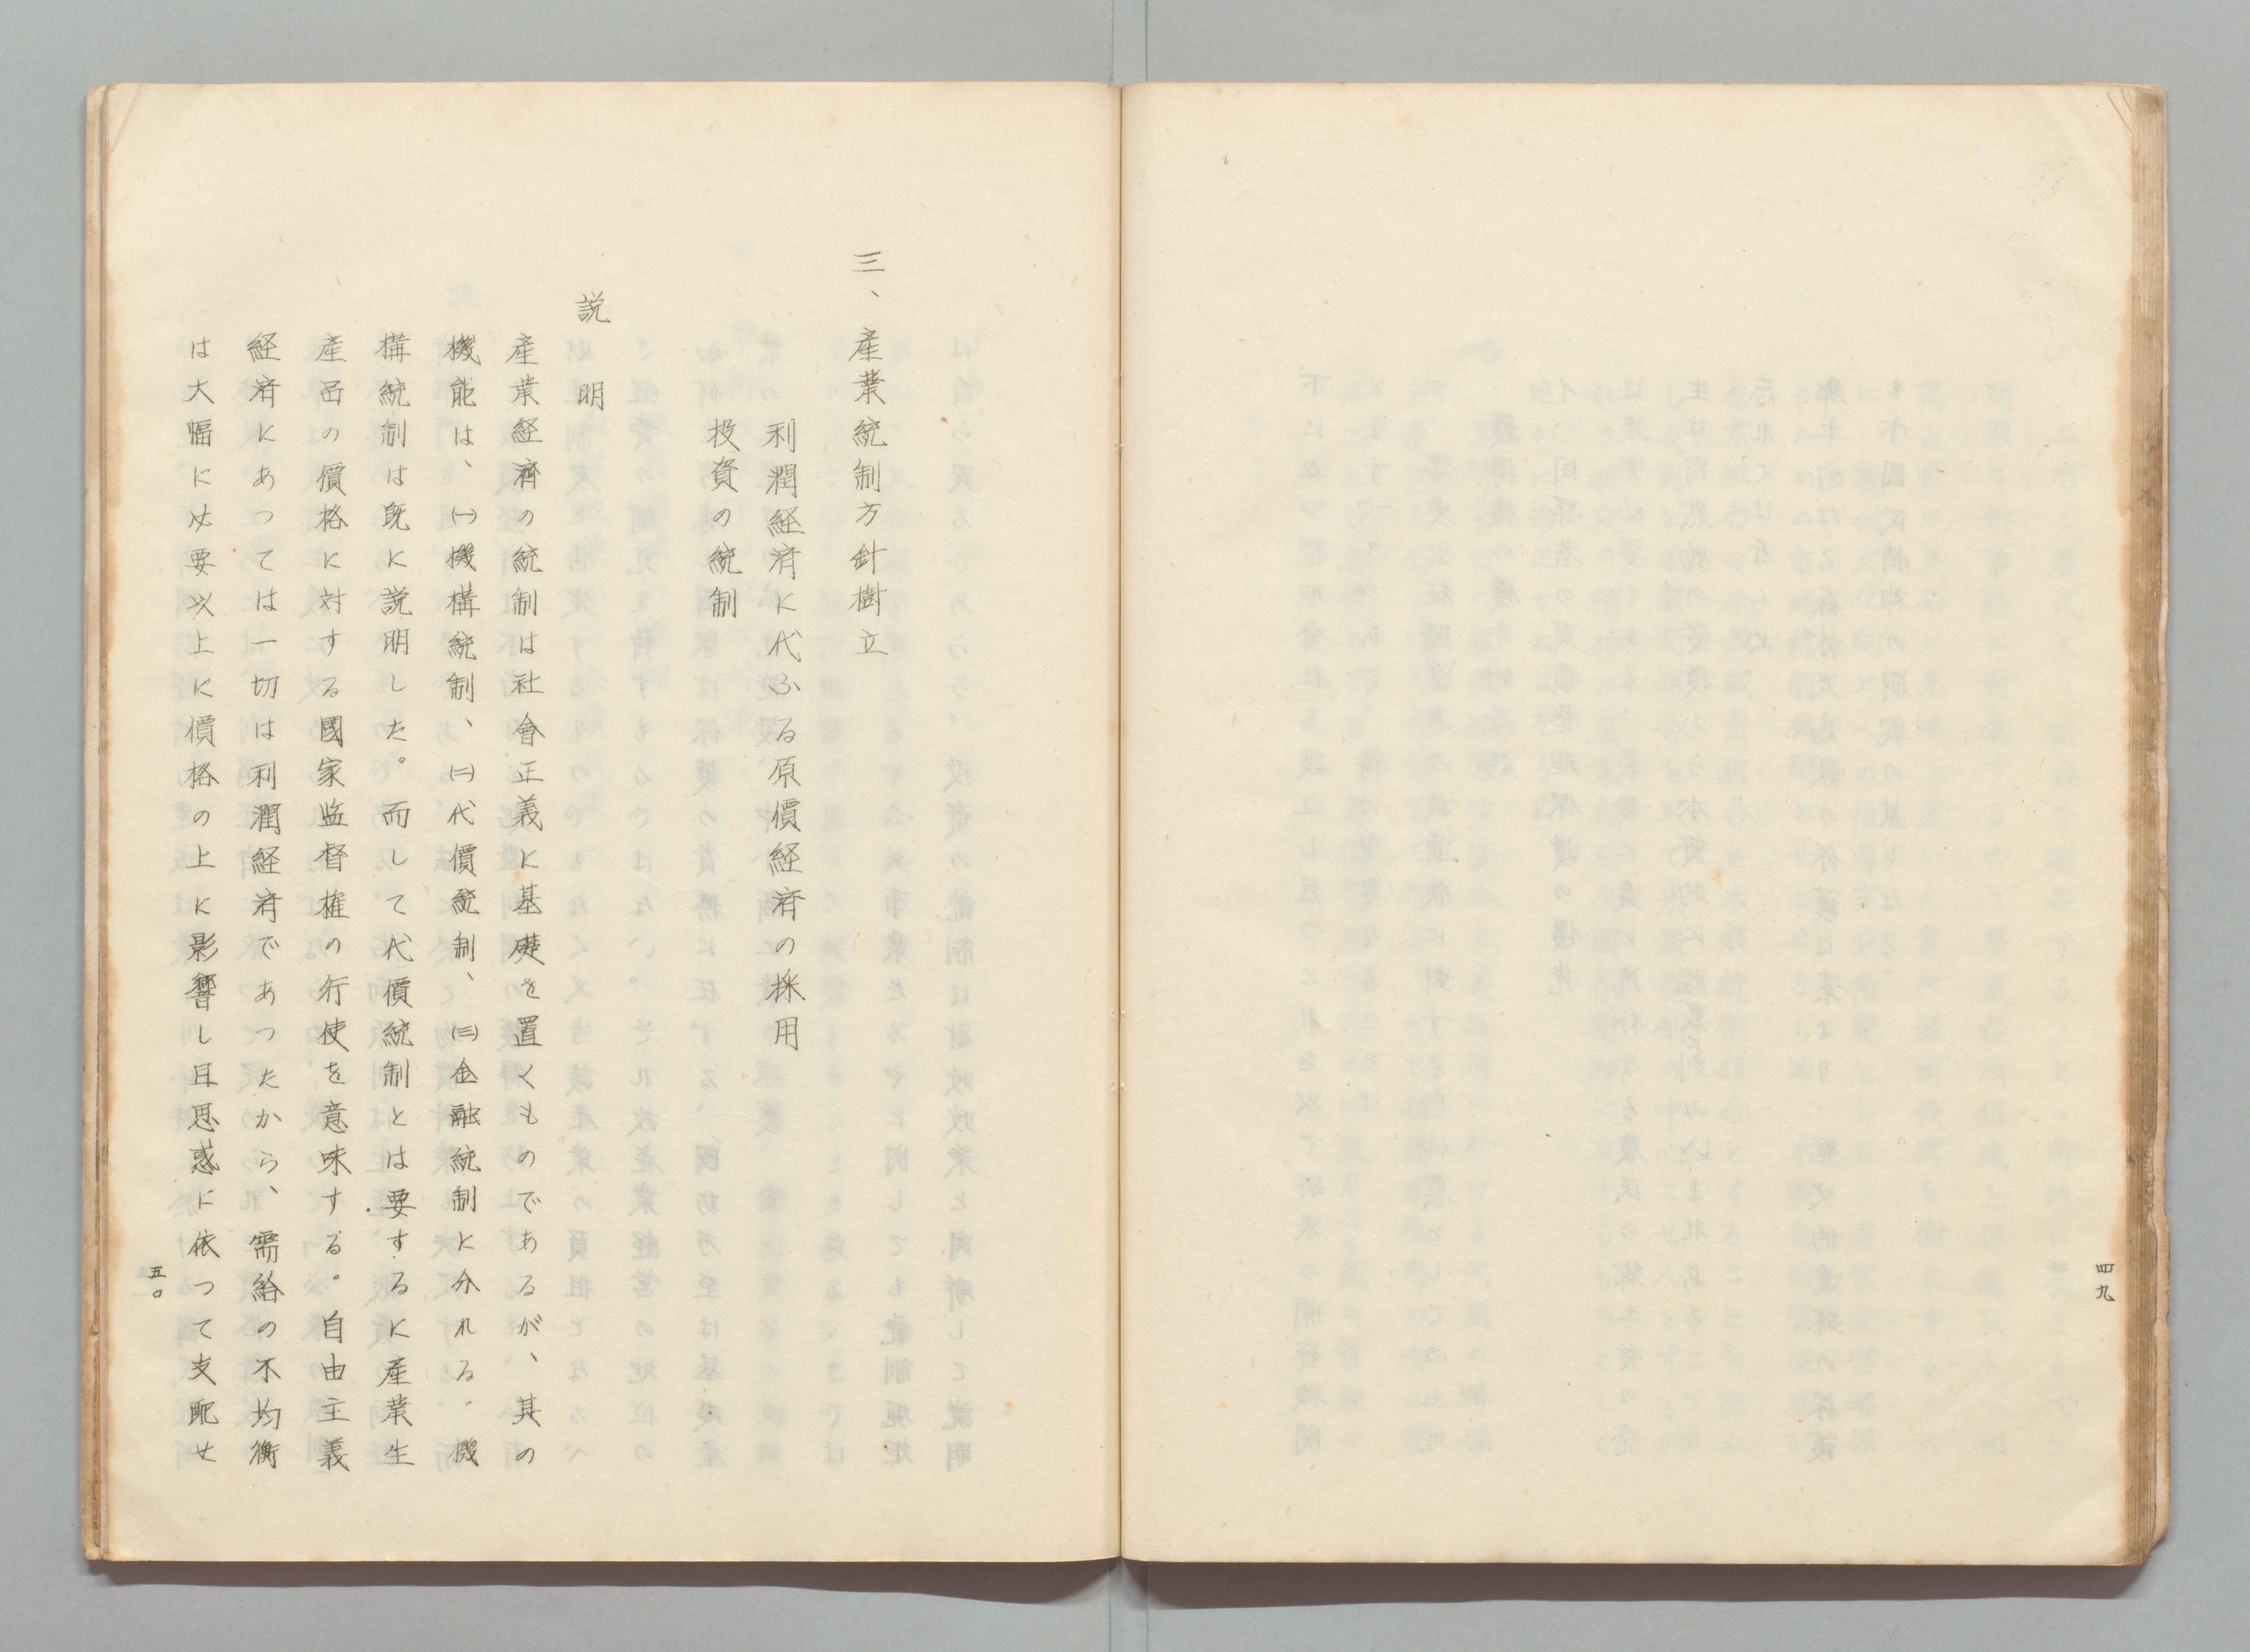 四九
三、産業統制方針樹立
利潤経済に代ふる原價経済の採用
投資の統制
説明
産業経濟の統制は社會正義に基礎を置くものであるが、其の
機能は、㈠機構統制、㈡代價統制、㈢金融統制に分れる。機
構統制は既に説明した。而して代價統制とは要するに産業生
産品の價格に対する國家監督権の行使を意味する。自由主義
経済にあつては一切は利潤経済であつたから、需給の不均衡
は大幅に必要以上に價格の上に影響し且思惑に依つて支配せ
五〇